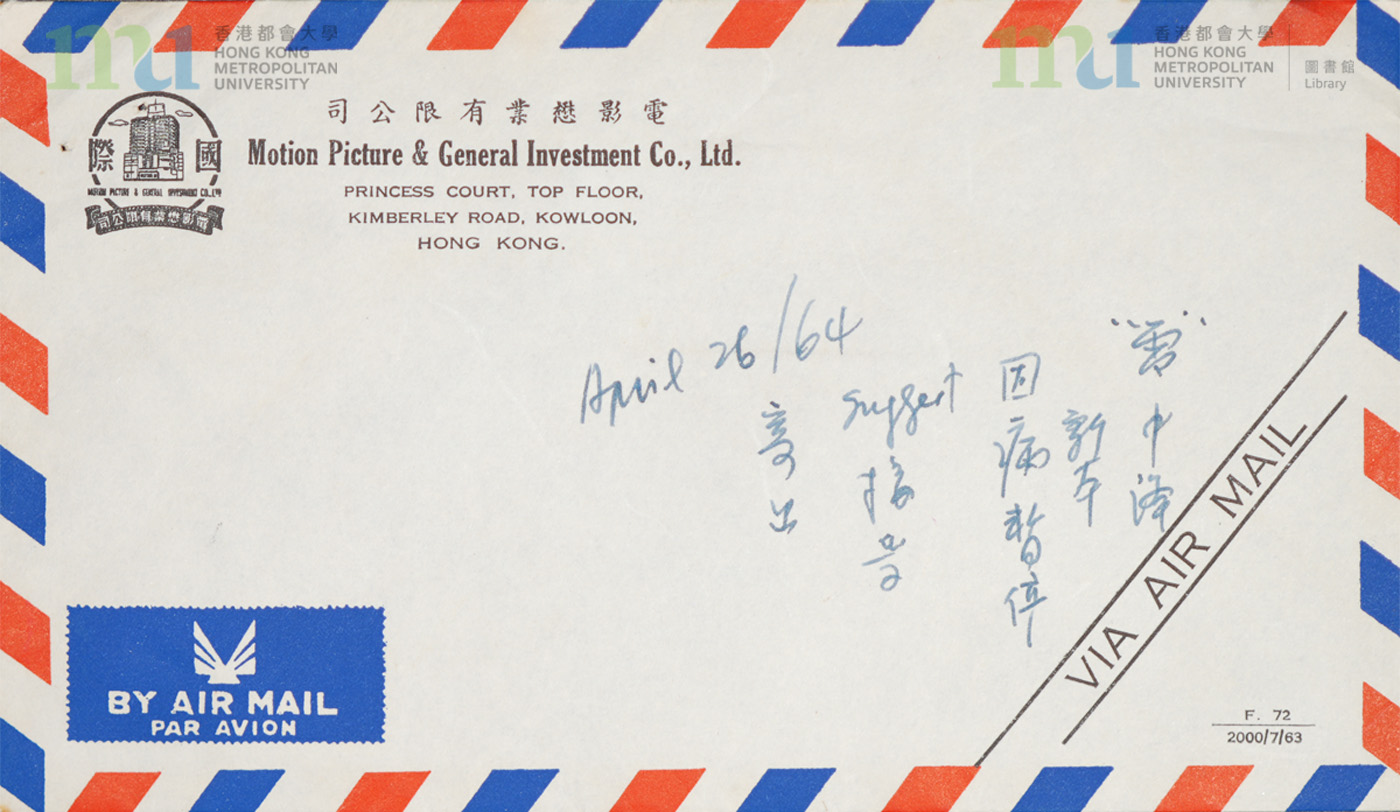 香港都會大學
HONG KONG
METROPOLITAN
UNIVERSITY
香港都會大學
HONG KONG
METROPOLITAN
UNIVERSITY
圖書館
Library
國際
MOTION PICTURE & GENERAL INVESTMENT CO., LTD
電影懋業有限公司
電影懋業有限公司
Motion Picture & General Investment Co., Ltd.
PRINCESS COURT, TOP FLOOR,
KIMBERLEY ROAD, KOWLOON,
HONG KONG.
中譯
新本
因病暫停
suggest
April 26/64
寄出
VIA AIR MAIL
BY AIR MAIL
PAR AVION
F. 72
2000/7/63